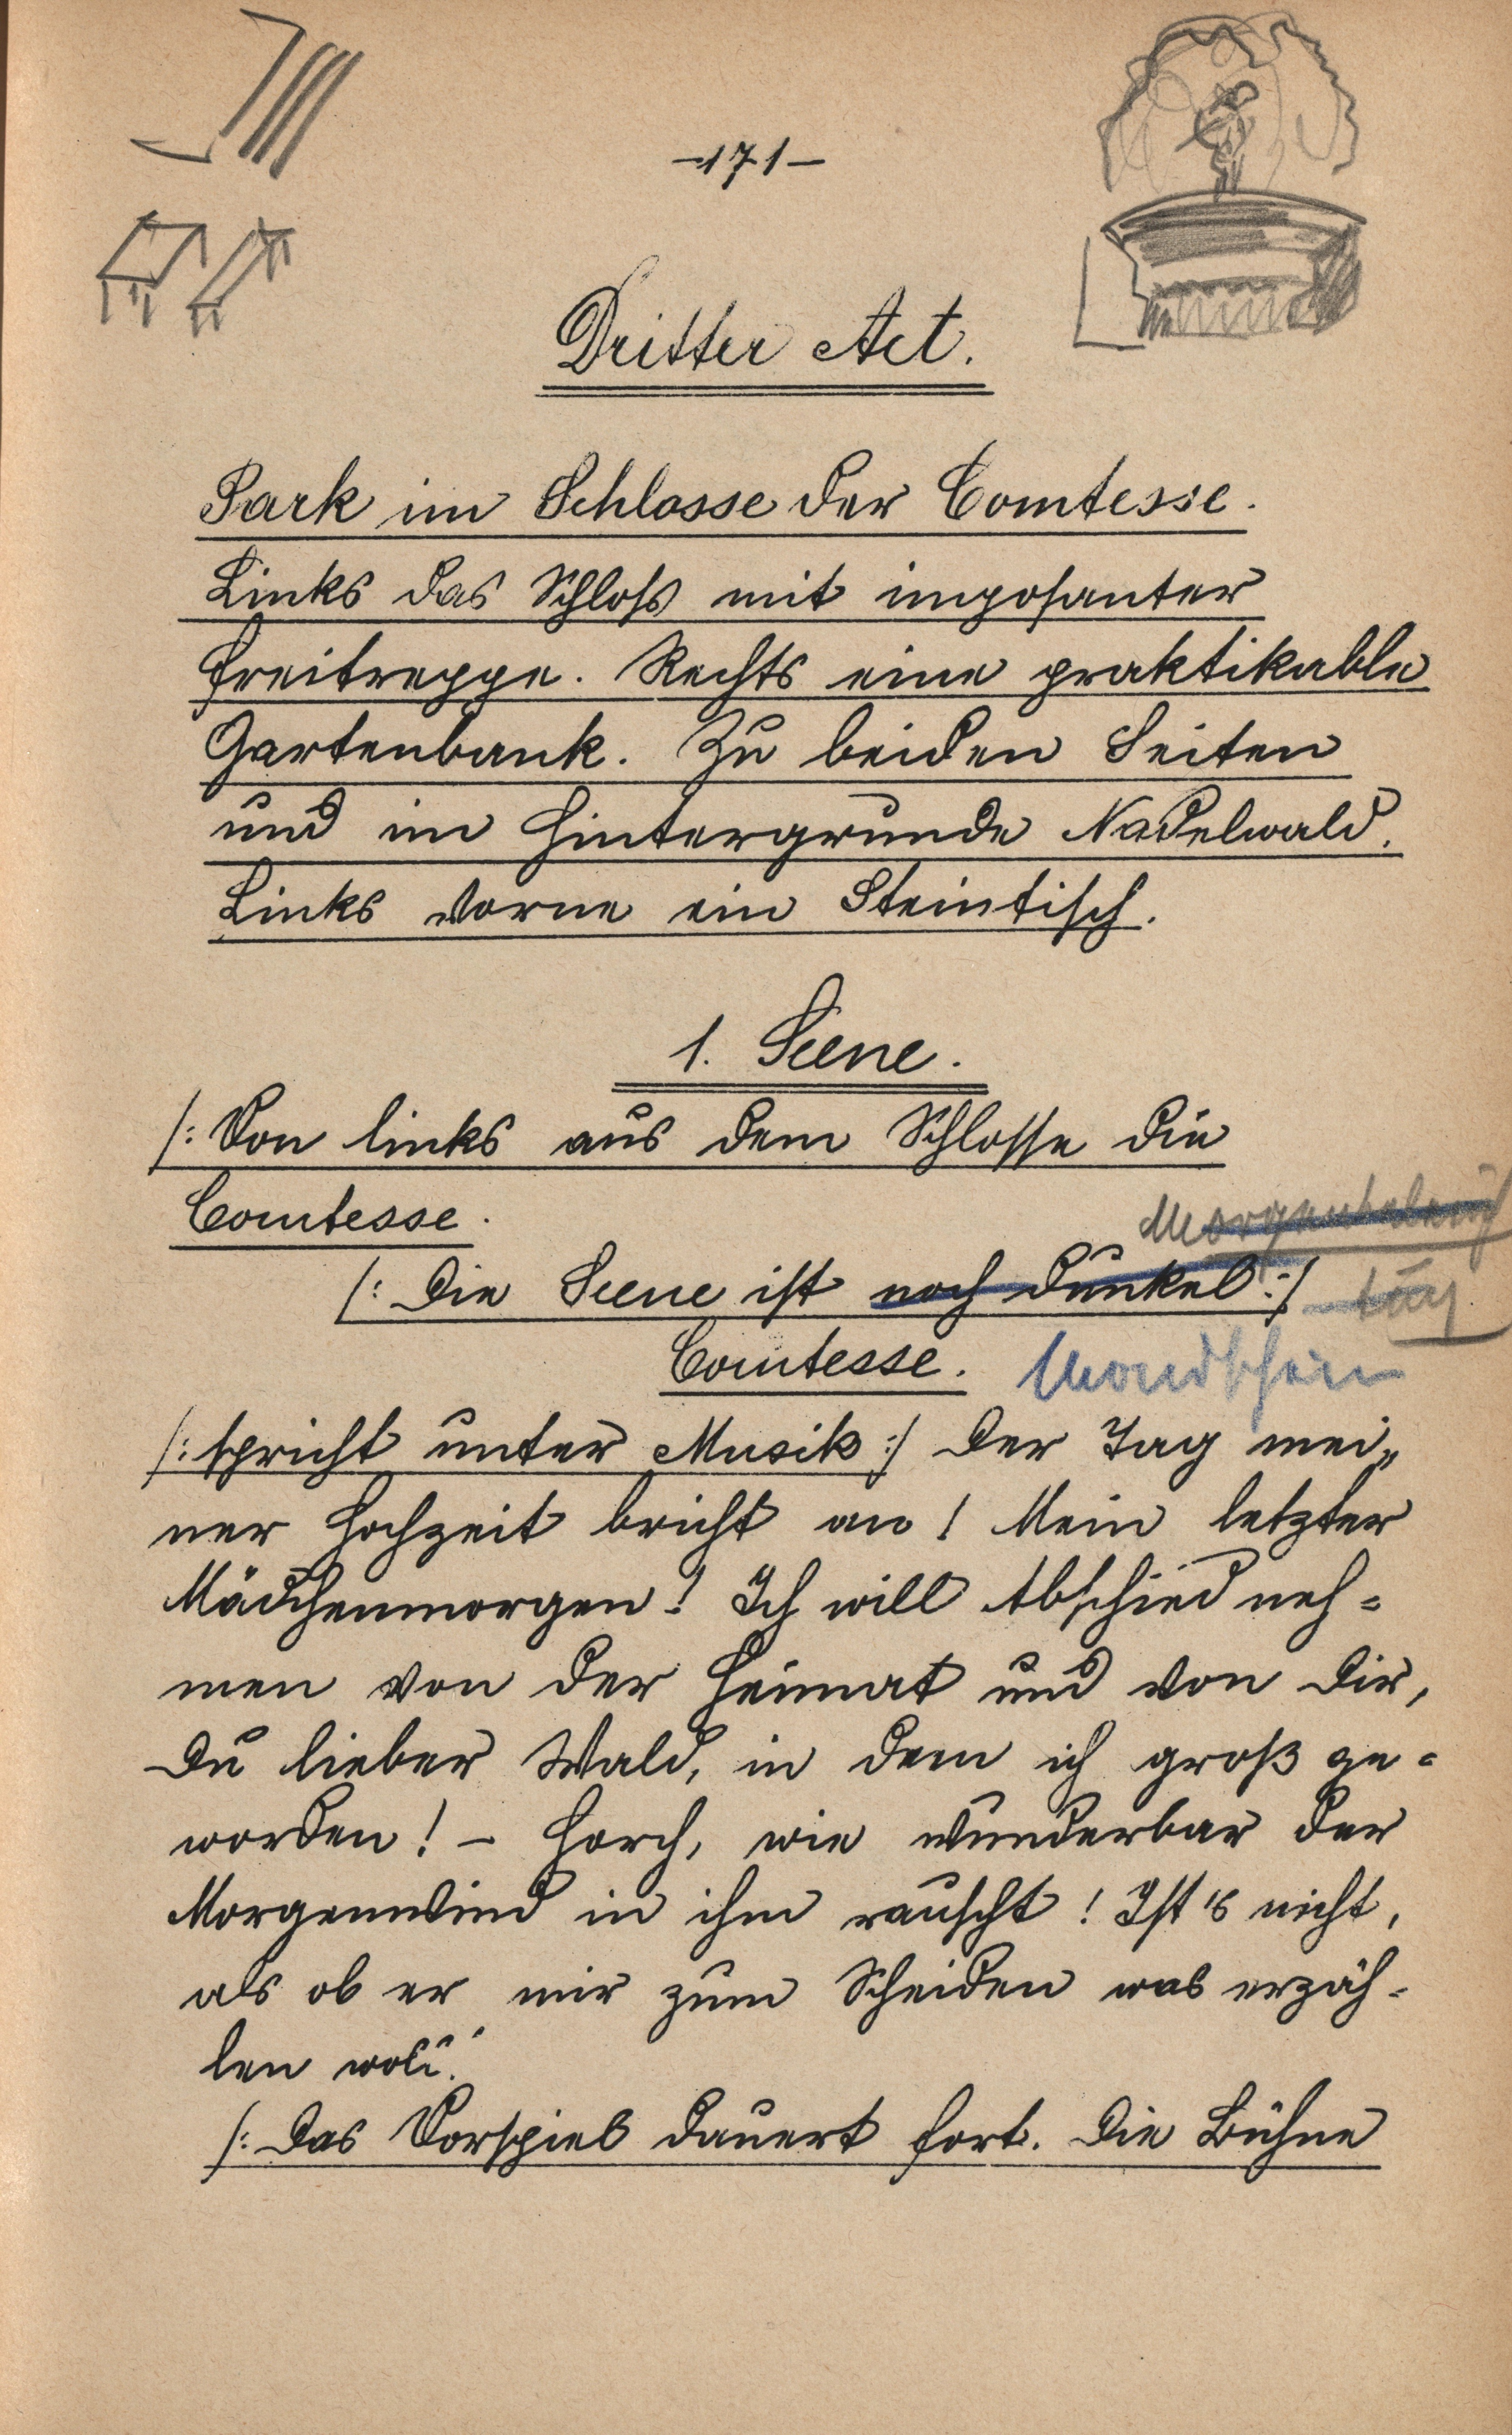 -171-
Dritter Act.
Park im Schlosse der Comtesse.
Links das Schloss mit imposanter
Freitreppe. Rechts eine praktikable
Gartenbank. Zu beiden Seiten
und im Hintergrunde Nadelwald.
Links vorne ein Steintisch.
1. Scene.
/: Von links aus dem Schlosse die
Comtesse.
/: Die Scene ist noch dunkel :/
Comtesse. Mondschein
/: spricht unter Musik :/ Der Tag mei„
ner Hochzeit bricht an! Mein letzter
Mädchenmorgen! Ich will Abschied neh=
men von der Heimat und von Dir,
Du lieber Wald, in dem ich groß ge=
worden! – Horch, wie wunderbar der
Morgenwind in ihm rauscht! Ist's nicht,
als ob er mir zum Scheiden was erzäh-
len woll'!
/: Das Vorspiel dauert fort. Die Bühne